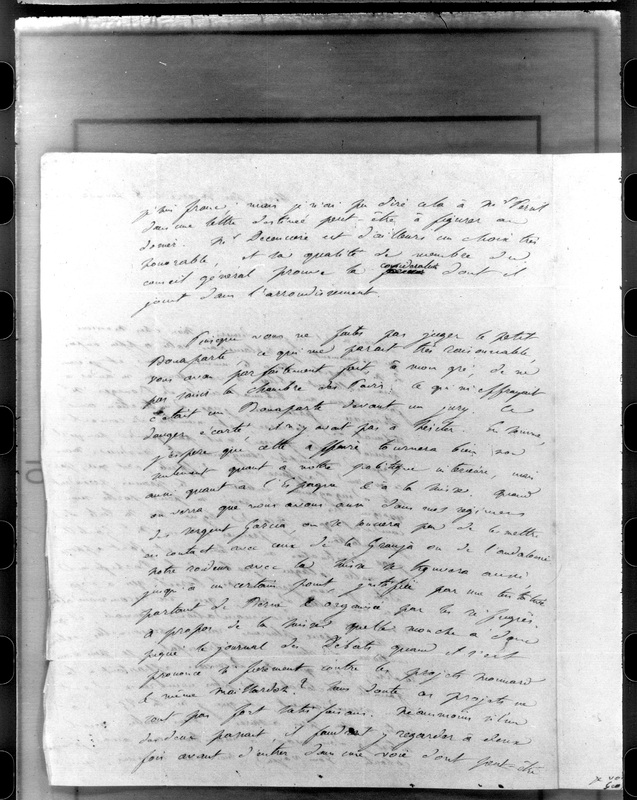 franc; mais je n'ai pu dire cela à Mr
dans une lettre destinée peut être à figurer au
dossier. Mr est d'ailleurs un choix très
honorable, et sa qualité de membre du
conseil général prouve la considération dont il
jouit dans l'arrondissement.
Puisque vous ne faites pas juger le petit
Bonaparte ce qui me parait très raisonnable,
vous avez parfaitement fait, à mon gré, de ne
pas saisir la chambre des Pairs. Ce qui m'effrayait
c'était un Bonaparte devant un jury. Ce
danger écarté il n'y avait pas à hésiter. En somme,
j'espère que cette affaire tournera bien non
seulement quant à notre politique intérieure, mais
aussi quant à l'Espagne et à la Suisse. quand
on verra que nous avons aussi dans nos régimens
des sergent Garcia, on se souciera peu de les mettre
en contact avec ceux de la Granja ou de l'andalousie
notre roideur avec la Suisse se trouvera aussi
jusqu'à un certain point justifiée par une
partant de Berne et organisée par les réfugiés.
A propos de la Suisse quelle mouche a donc
piqué le journal des Débats quand il s'est
prononcé si fièrement contre les projets
et même ? Sans doute ces projets ne
sont pas fort satisfaisans. néanmoins si l'un
des deux passait, il faudrait y regarder à deux
fois avant d'entrer dans une voie dont peut-être